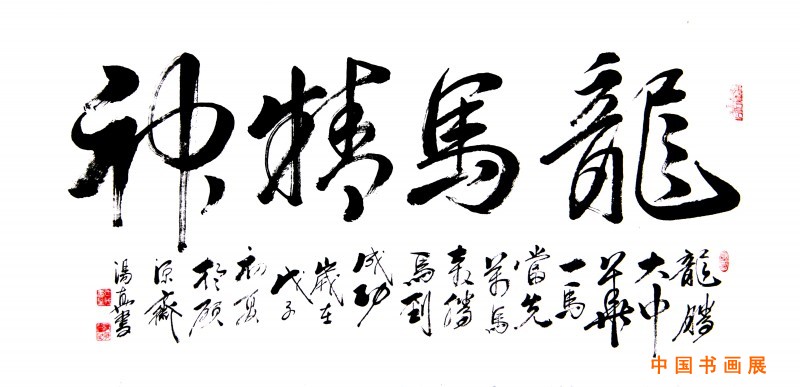 龍馬精神
龍騰
大中
華
一馬
當先
萬馬
奔騰
馬到
成功
歲在
戊子
初夏
於
齋
湯書
中国书画展